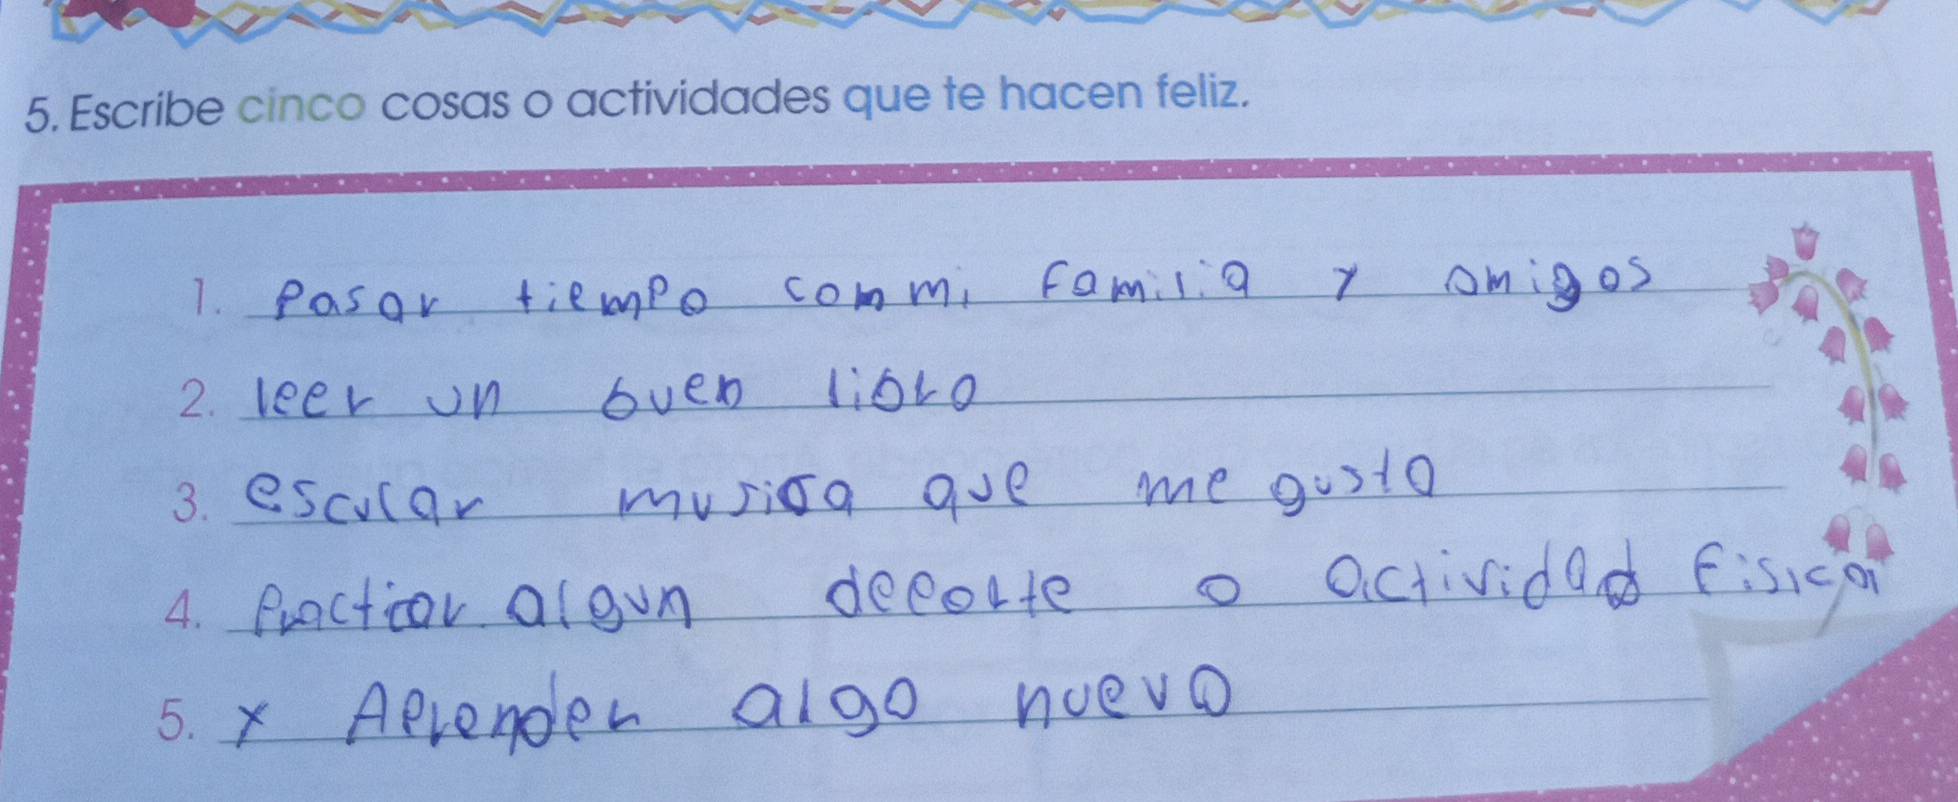 5. Escribe cinco cosas o actividades que te hacen feliz.
1. Pasar tiempo con mi familia y amigos
2. leer un buen libro
3. escular musica que me gusta
4. Practicar algun deporte o actividad fisica
5. y Aprender algo nuevo